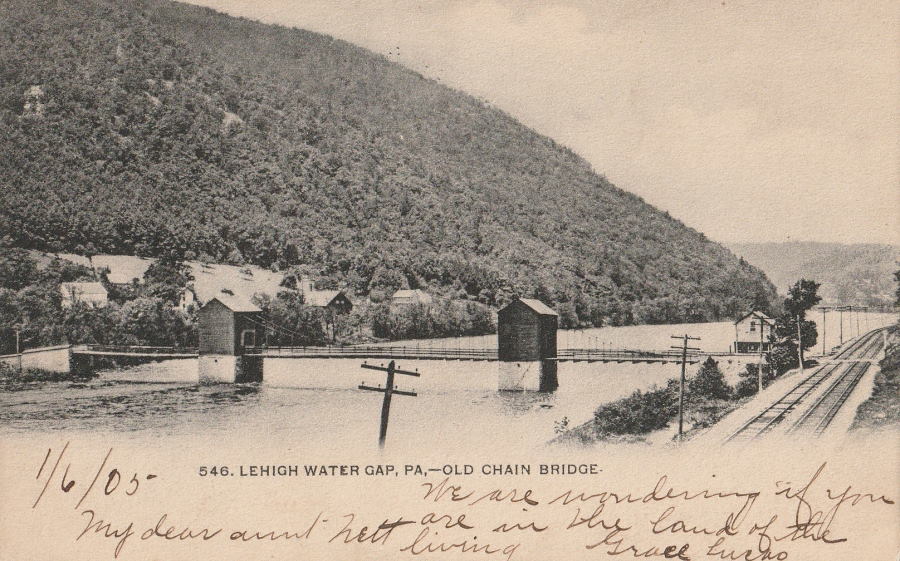 546. LEHIGH WATER GAP, PA,—OLD CHAIN BRIDGE.
1/6/05
My dear aunt Nett
We are wondering if you
are in the land of the
living Grace Lucas